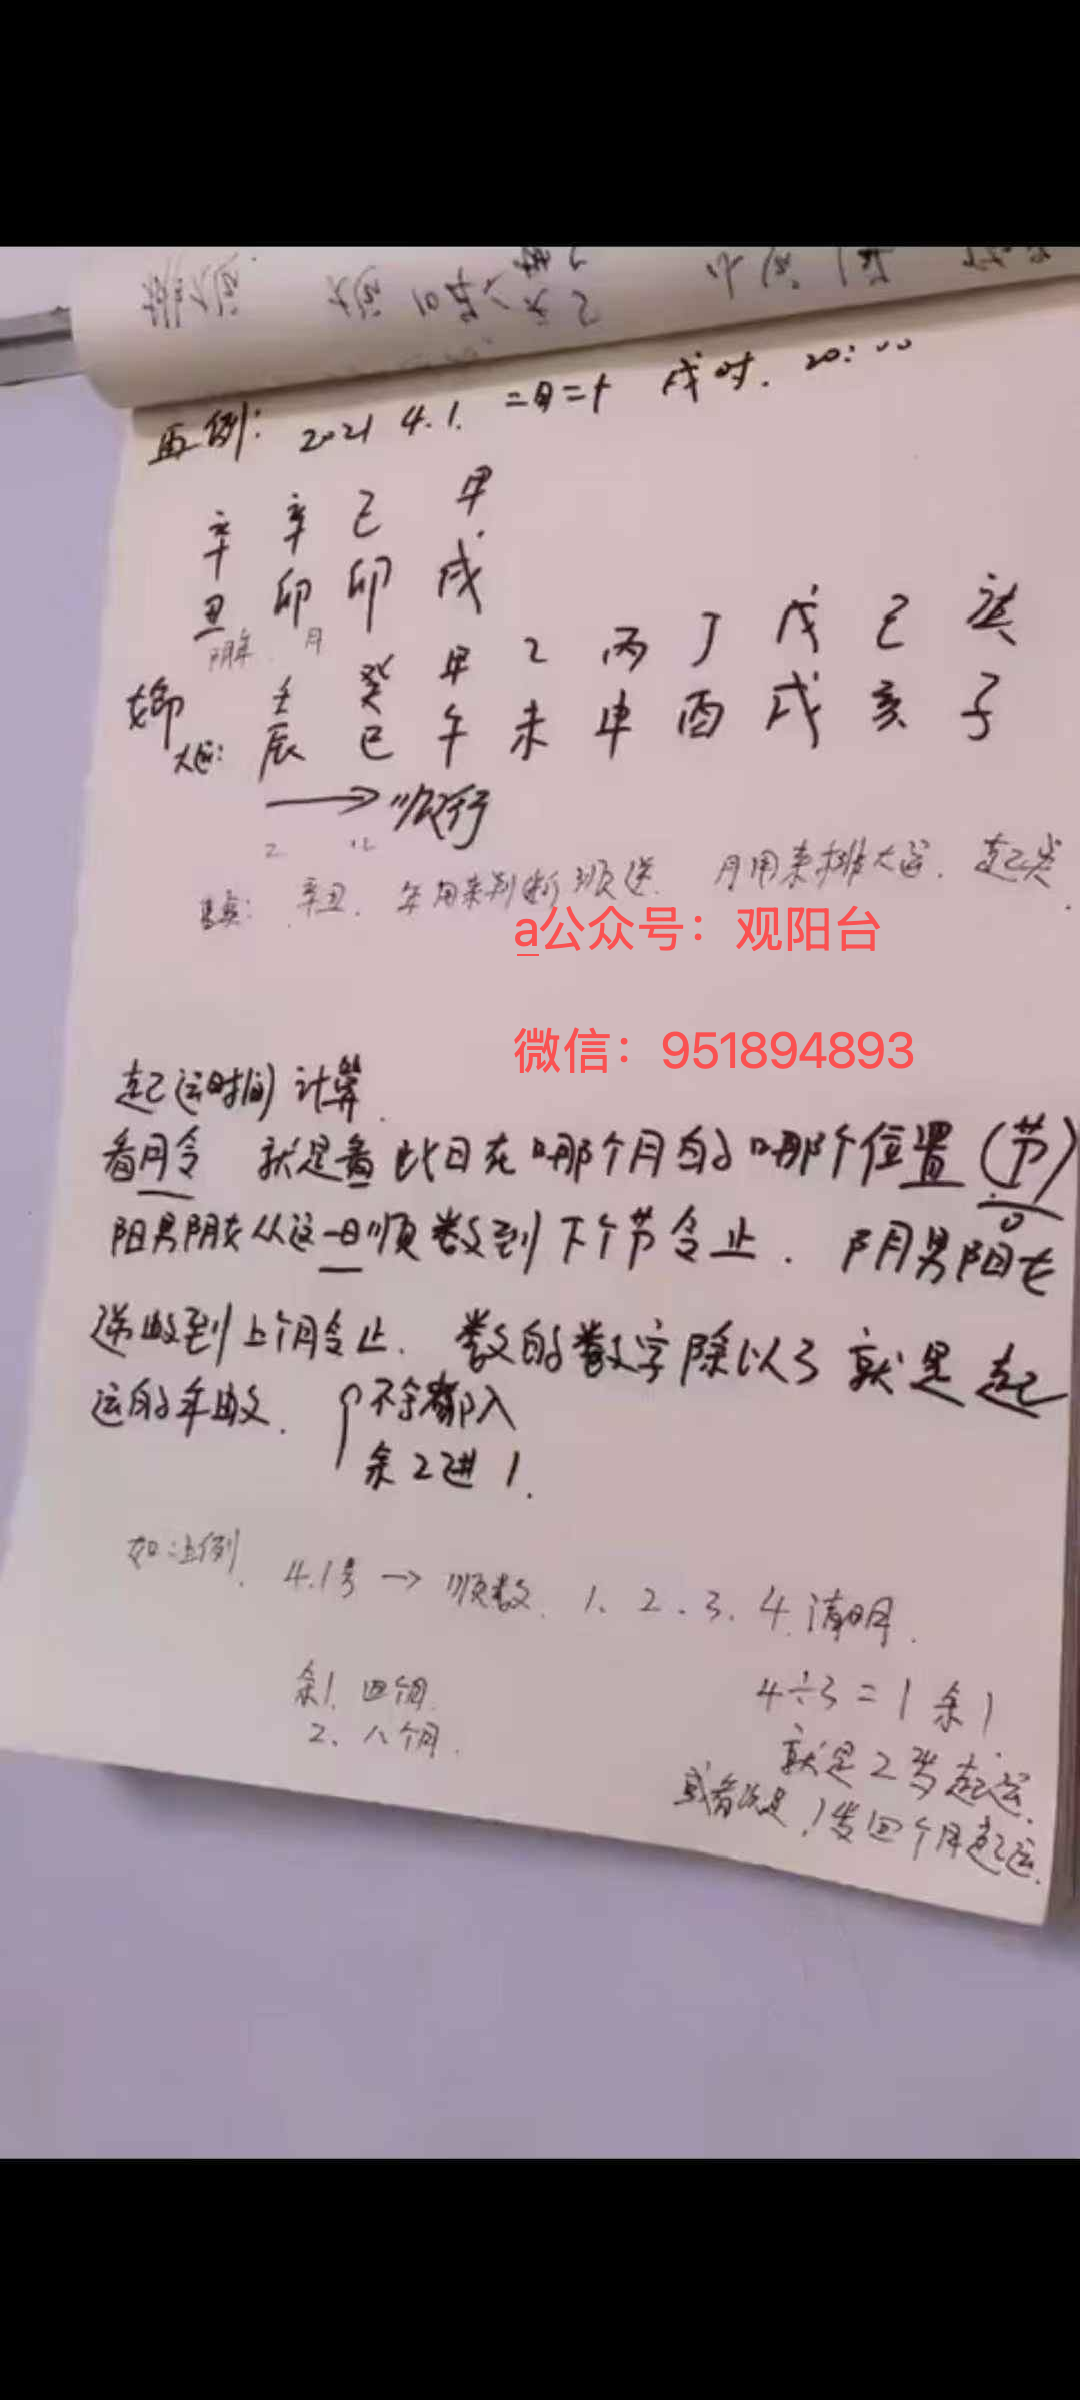 再例： 2021 4.1. 二月二十 戌时. 20:
辛 辛 己 甲
丑 卯 卯 戌
阴年 月
壬 癸 甲 乙 丙 丁 戊 己
大运： 辰 巳 午 未 申 酉 戌 亥 子
→ 顺行
2 12
辛丑. 年用来判断顺逆. 月用来排大运. 起
a公众号：观阳台
微信：951894893
起运时间计算.
看月令 就是看此日在哪个月的哪个位置 (节)
阳男阴女从这一日顺数到下个节令止. 阴男阳女
逆数到上个月令止. 数的数字除以3就是起
运的年数. 不余都入
余2进1.
如上例. 4.1号 → 顺数. 1、2.3.4.清明.
余1. 四个月.
2、八个月.
4÷3=1余1
就是2岁起运.
或者说是1岁四个月起运.